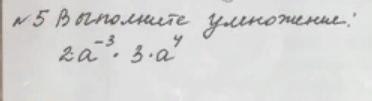 №5 Выполните умножение:
2a⁻³ · 3 · a⁴